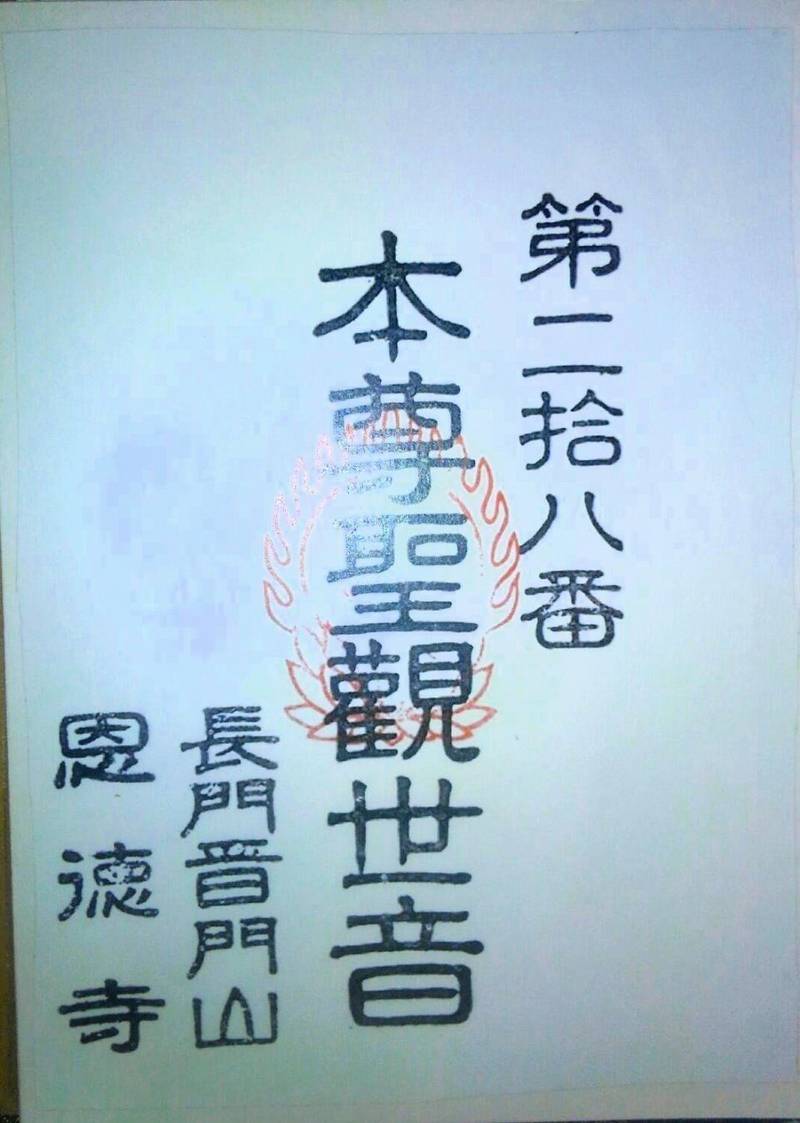 第二拾八番
本尊聖觀世音
長門普門山
恩徳寺